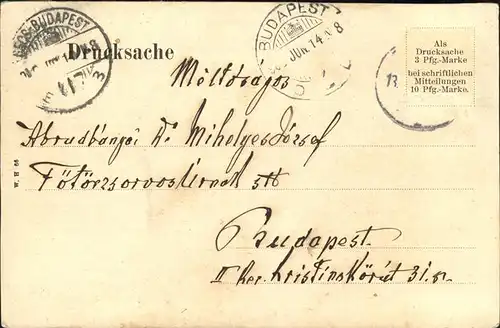 BUDAPEST
Drucksache
BUDAPEST
JUN. 14
Als
Drucksache
3 Pfg.-Marke
bei schriftlichen
Mitteilungen
10 Pfg.-Marke.
Méltóságos
Abrudbányai Mihelyes József
Főtörzsorvos Úrnak stb
Budapest.
II Ker. Kristinskörút 31.
W. H 66